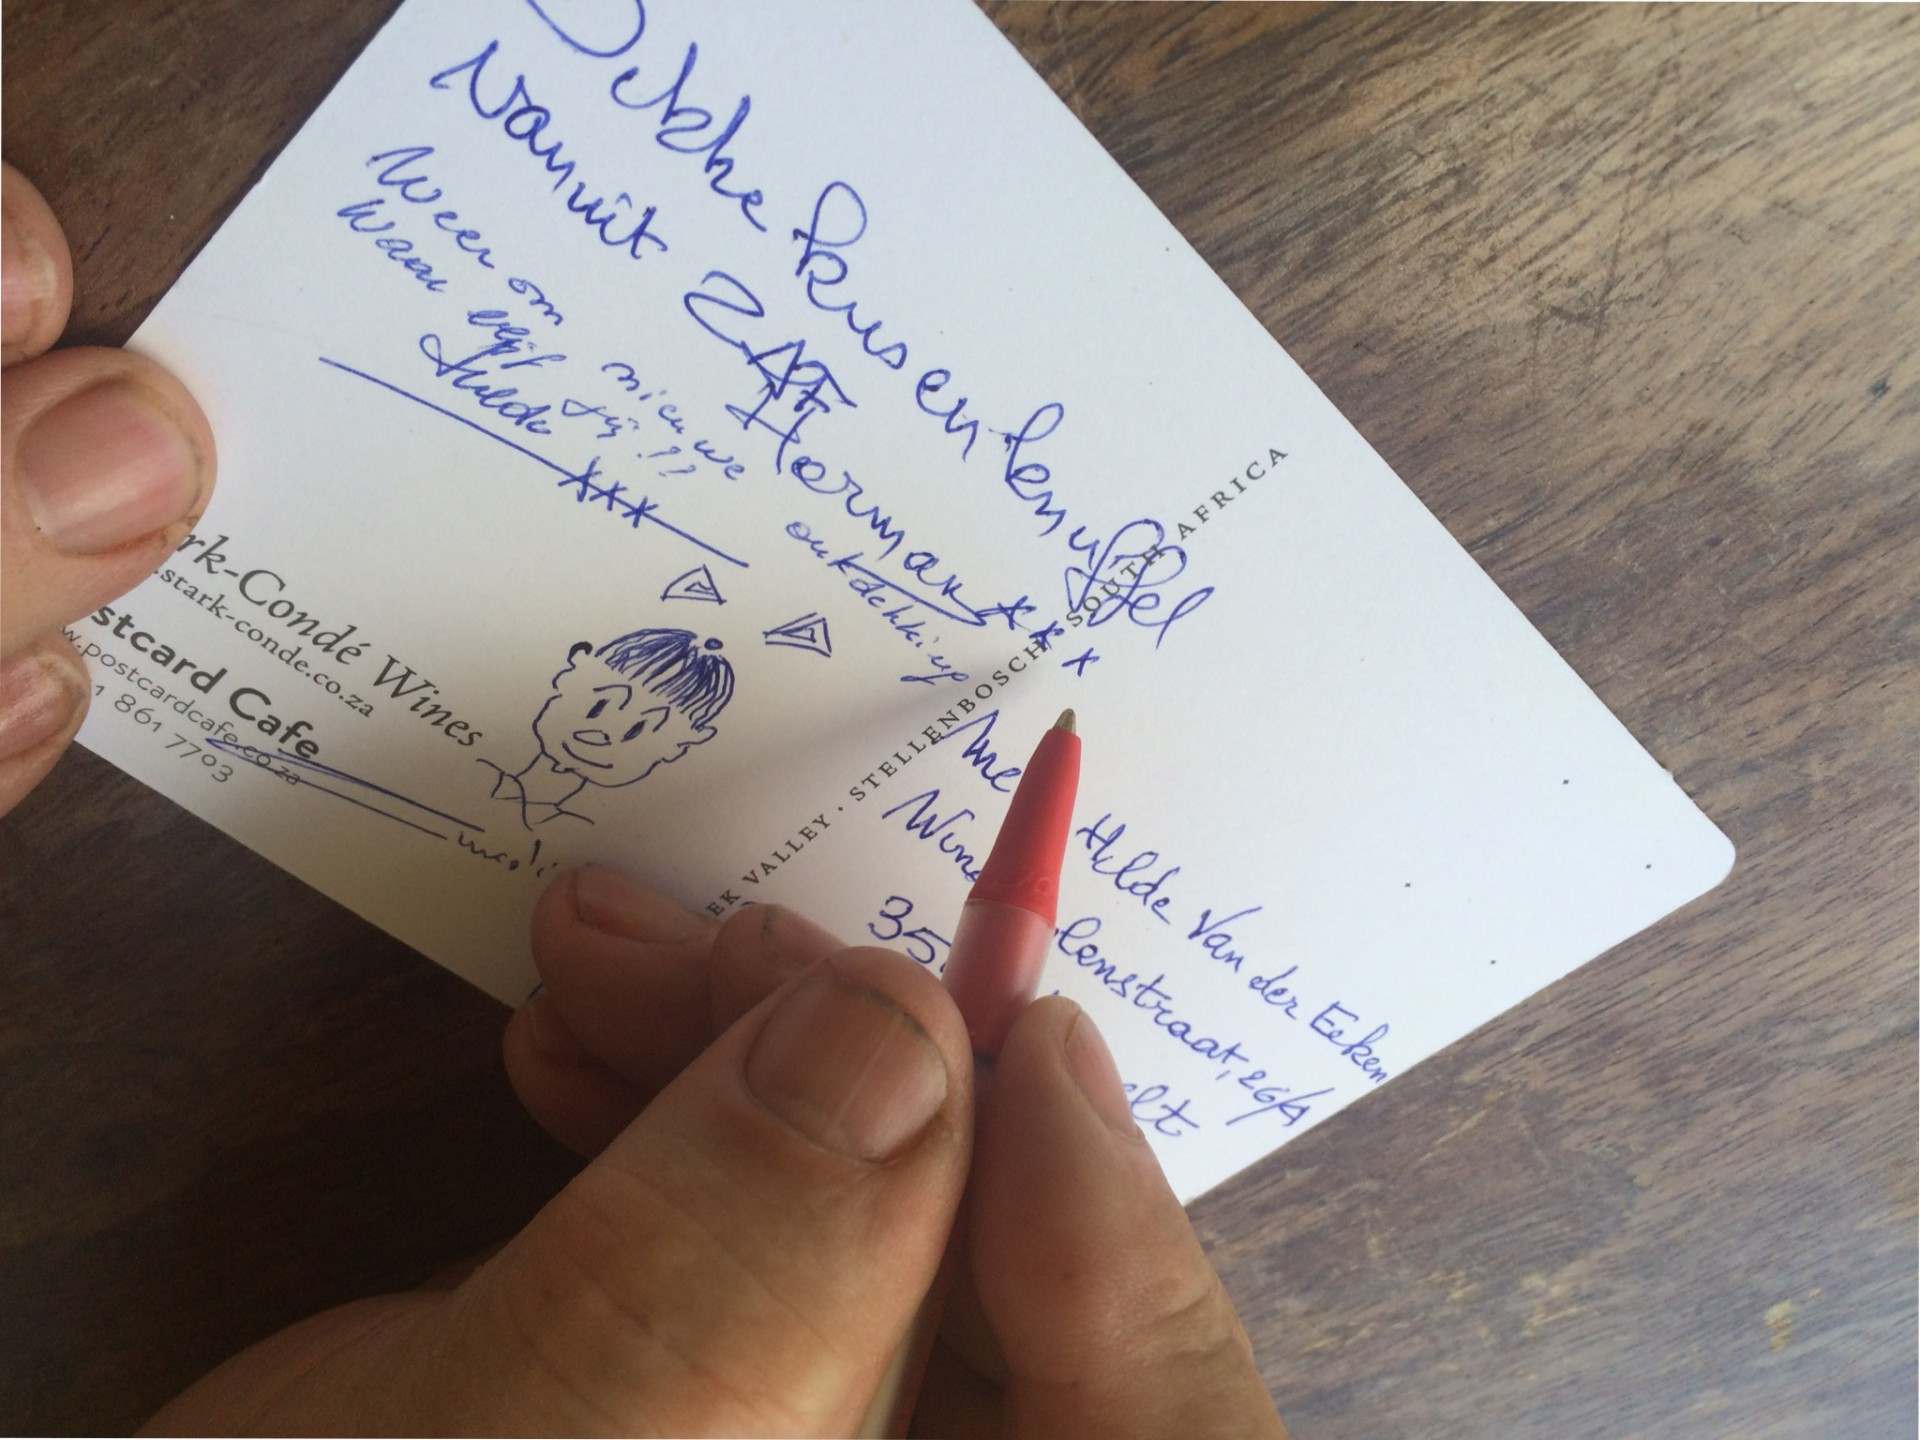 Dikke kus en knuffel
vanuit ZAF
Herman xxx
Weer om nieuwe
Waar blijf jij??
Hilde
xxx
rk-Condé Wines
.stark-conde.co.za
stcard Cafe
w.postcardcafe.co.za
1 861 7703
EK VALLEY · STELLENBOSCH · SOUTH AFRICA
Hilde Van der Eeken
lenstraat, 26/4
35
elt